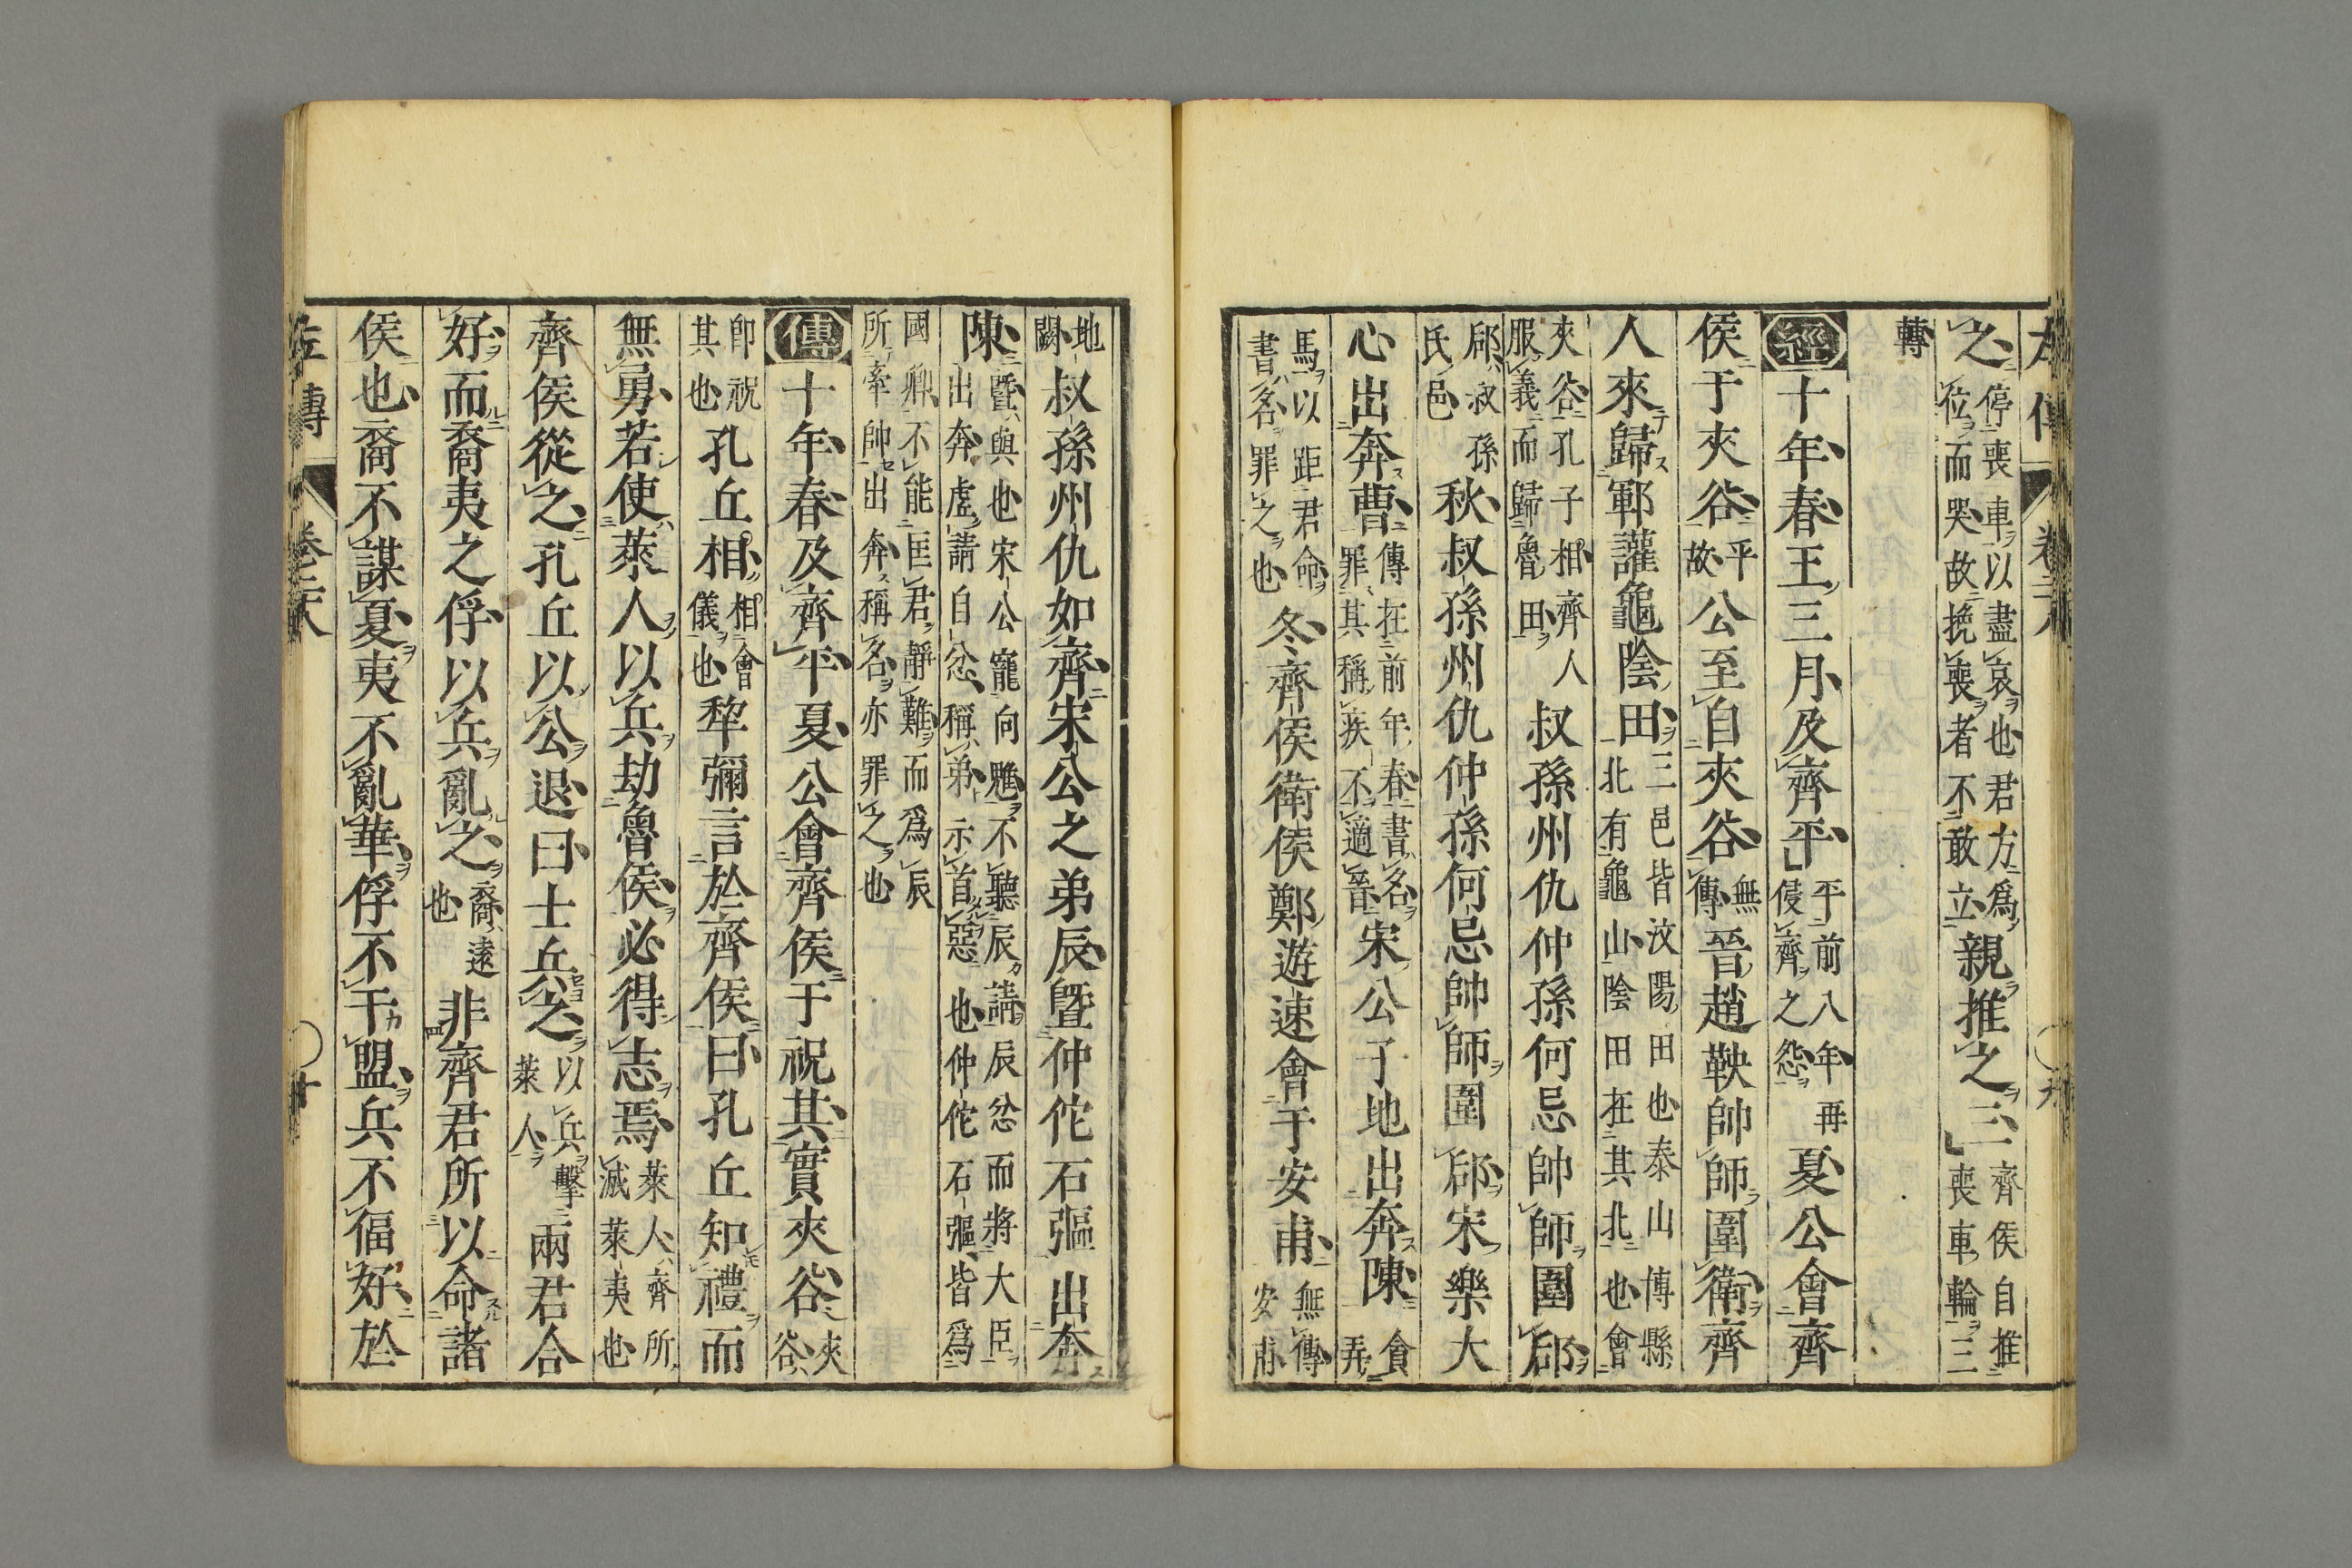 左傳 卷二十八 九
之停喪車以盡哀也君方爲位而哭故挽喪者不敢立親推之三齊侯自推喪車輪三
轉
經十年春王三月及齊平平前八年再侵齊之怨夏公會齊
侯于夾谷平故公至自夾谷無傳晉趙鞅帥師圍衛齊
人來歸鄆讙龜陰田三邑皆汶陽田也泰山博縣北有龜山陰田在其北也會
夾谷孔子相齊人服義而歸魯田叔孫州仇仲孫何忌帥師圍郈
郈叔孫氏邑秋叔孫州仇仲孫何忌帥師圍郈宋樂大
心出奔曹傳在前年春書名罪其稱疾不適晉宋公子地出奔陳貪弄
馬以距君命書名罪之也冬齊侯衛侯鄭游速會于安甫無傳安甫
地闕叔孫州仇如齊宋公之弟辰暨仲佗石彄出奔
陳暨與也宋公寵向魋不聽辰請辰忿而將大臣出奔虛請自忿稱弟示首惡也仲佗石彄皆爲
國卿不能匡君靜難而爲辰所牽帥出奔稱名亦罪之也
傳十年春及齊平夏公會齊侯于祝其實夾谷夾谷
卽祝其也孔丘相相會儀也犂彌言於齊侯曰孔丘知禮而
無勇若使萊人以兵劫魯侯必得志焉萊人齊所滅萊夷也
齊侯從之孔丘以公退曰士兵之以兵擊萊人兩君合
好而裔夷之俘以兵亂之裔遠也非齊君所以命諸
侯也裔不謀夏夷不亂華俘不干盟兵不偪好於
左傳 卷二十八 十